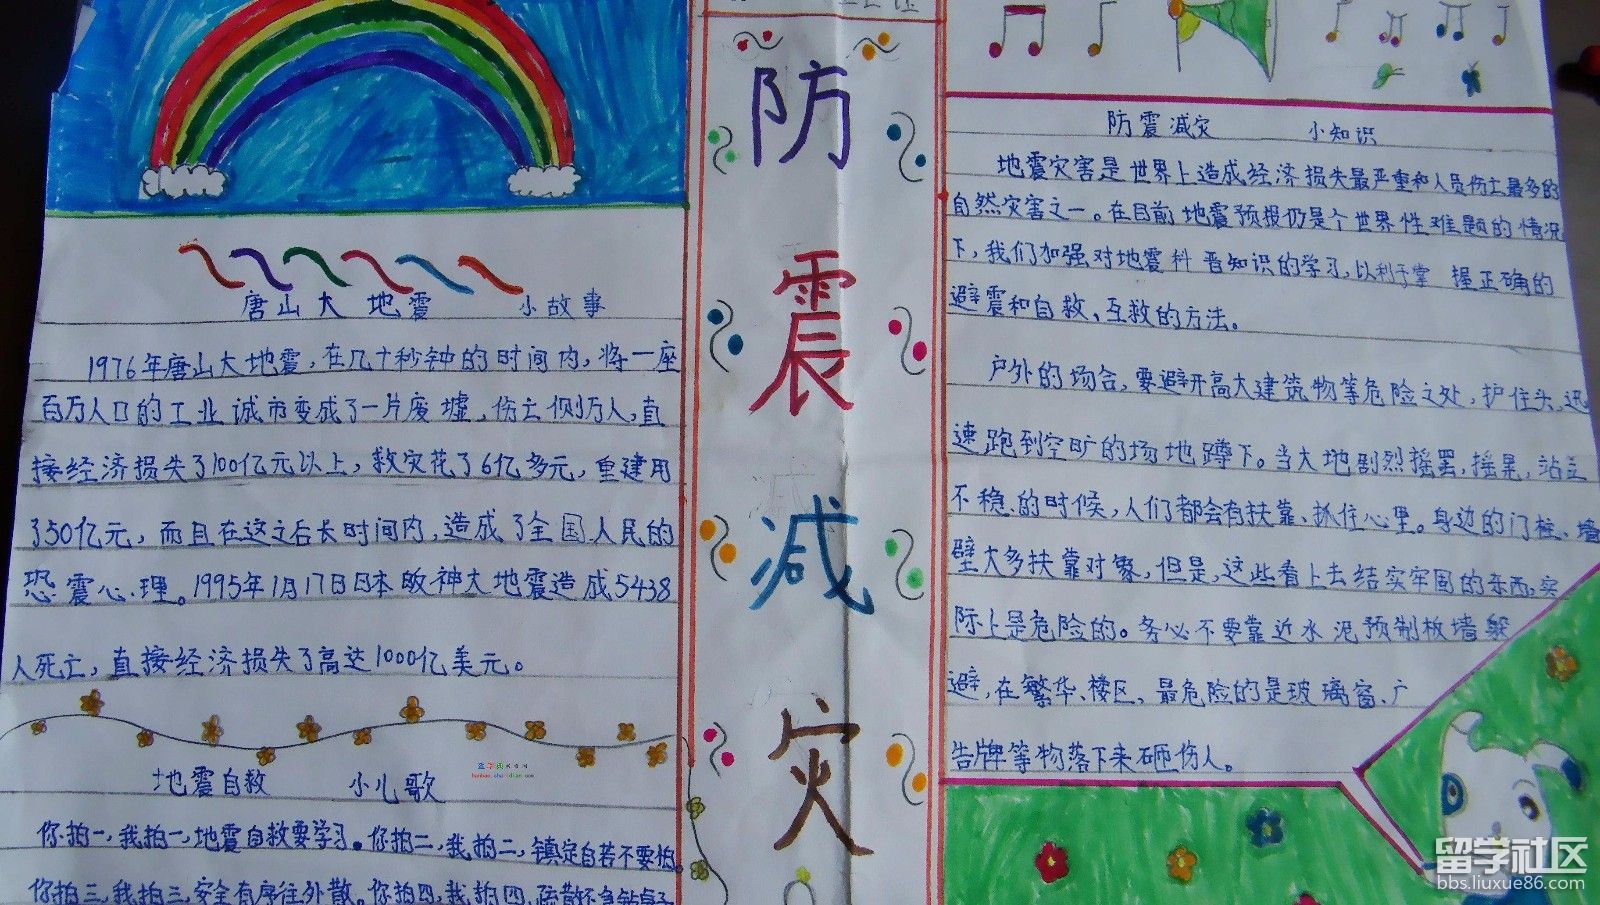 唐山大地震 小故事
1976年唐山大地震,在几十秒钟的时间内,将一座
百万人口的工业城市变成了一片废墟,伤亡侧万人,直
接经济损失了100亿元以上,救灾花了6亿多元,重建用
了50亿元,而且在这之后长时间内,造成了全国人民的
恐震心理。1995年1月17日日本阪神大地震造成5438
人死亡,直接经济损失了高达1000亿美元。
地震自救 小儿歌
你拍一,我拍一,地震自救要学习。你拍二,我拍二,镇定自若不要怕。
你拍三,我拍三,安全有序往外散。你拍四,我拍四,
防
震
减
灾
防震减灾 小知识
地震灾害是世界上造成经济损失最严重和人员伤亡最多的
自然灾害之一。在目前地震预报仍是个世界性难题的情况
下,我们加强对地震科普知识的学习,以利于掌握正确的
避震和自救、互救的方法。
户外的场合,要避开高大建筑物等危险之处,护住头,迅
速跑到空旷的场地蹲下。当大地剧烈摇罢,摇晃,站立
不稳的时候,人们都会有扶靠、抓住心里。身边的门柱、墙
壁大多扶靠对象,但是,这些看上去结实牢固的东西,实
际上是危险的。务必不要靠近水泥预制板墙躲
避,在繁华、楼区,最危险的是玻璃窗、广
告牌等物落下来砸伤人。
留学社区
bbs.liuxue86.com